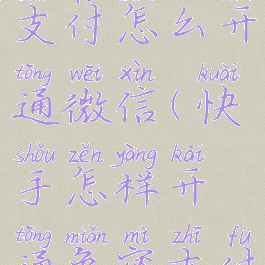 支付怎么开
tōng wēi xìn kuài
通微信(快
shǒu zěn yàng kāi
手怎样开
tōng miǎn mì zhī fù
通免密支付